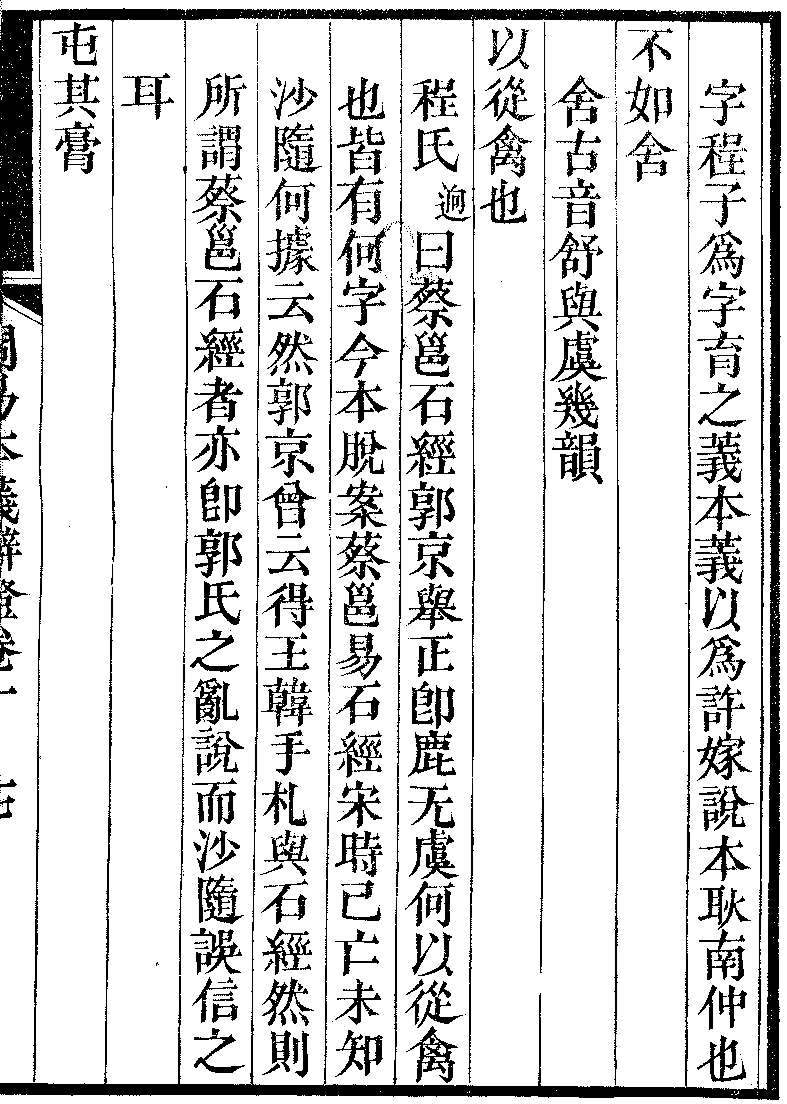 字程子爲字育之義本義以爲許嫁說本耿南仲也
不如舍
舍古音舒與虞幾韻
以從禽也
程氏迥曰蔡邕石經郭京舉正卽鹿无虞何以從禽
也皆有何字今本脫案蔡邕易石經宋時已亡未知
沙隨何據云然郭京曾云得王韓手札與石經然則
所謂蔡邕石經者亦卽郭氏之亂說而沙隨誤信之
耳
屯其膏
周易本義辨證卷一